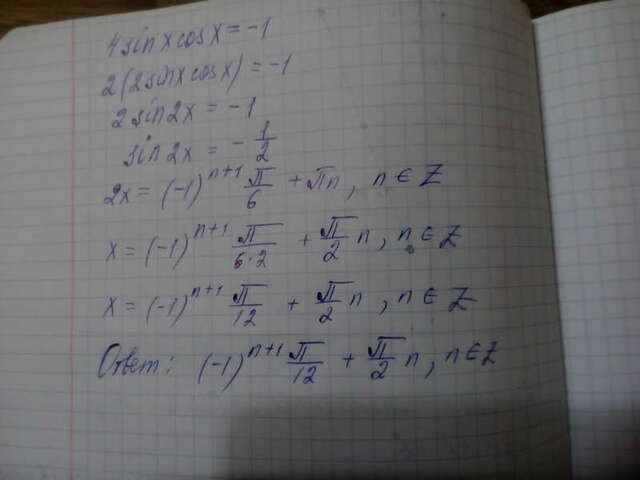 4 sin x cos x = -1
2(2 sin x cos x) = -1
2 sin 2x = -1
sin 2x = - 1/2
2x = (-1)^(n+1) π/6 + πn, n ∈ Z
x = (-1)^(n+1) π/(6·2) + π/2 n, n ∈ Z
x = (-1)^(n+1) π/12 + π/2 n, n ∈ Z
Ответ: (-1)^(n+1) π/12 + π/2 n, n ∈ Z